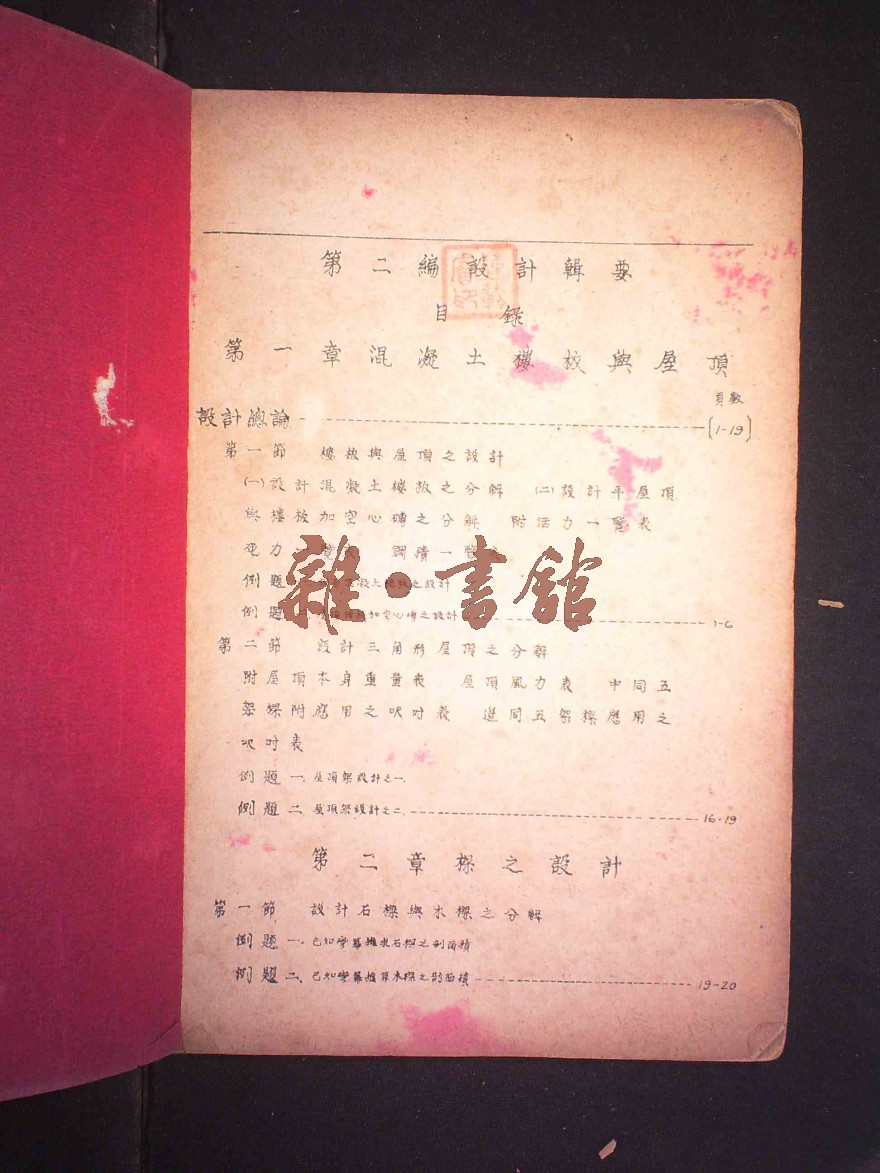 第二編設計輯要
目錄
第一章混凝土樓板與屋頂
頁數
設計總論 (1-19)
第一節 樓板與屋頂之設計
(一)設計混凝土樓板之分解 (二)設計平屋頂
與樓板加空心磚之分解 附活力一覽表
力 一覽
例題 混凝土樓板之設計
例題 樓板加空心磚之設計 1-6
第二節 設計三角形屋頂之分解
附屋頂本身重量表 屋頂風力表 中同五
架樑附應用之呎吋表 邊同五架樑應用之
呎吋表
例題一.屋頂架設計之一.
例題二屋頂架設計之二. 16-19
第二章樑之設計
第一節 設計石樑與木樑之分解
例題一.已知 石樑之剖面積
例題二.已知 木樑之剖面積 19-20
雜·書館